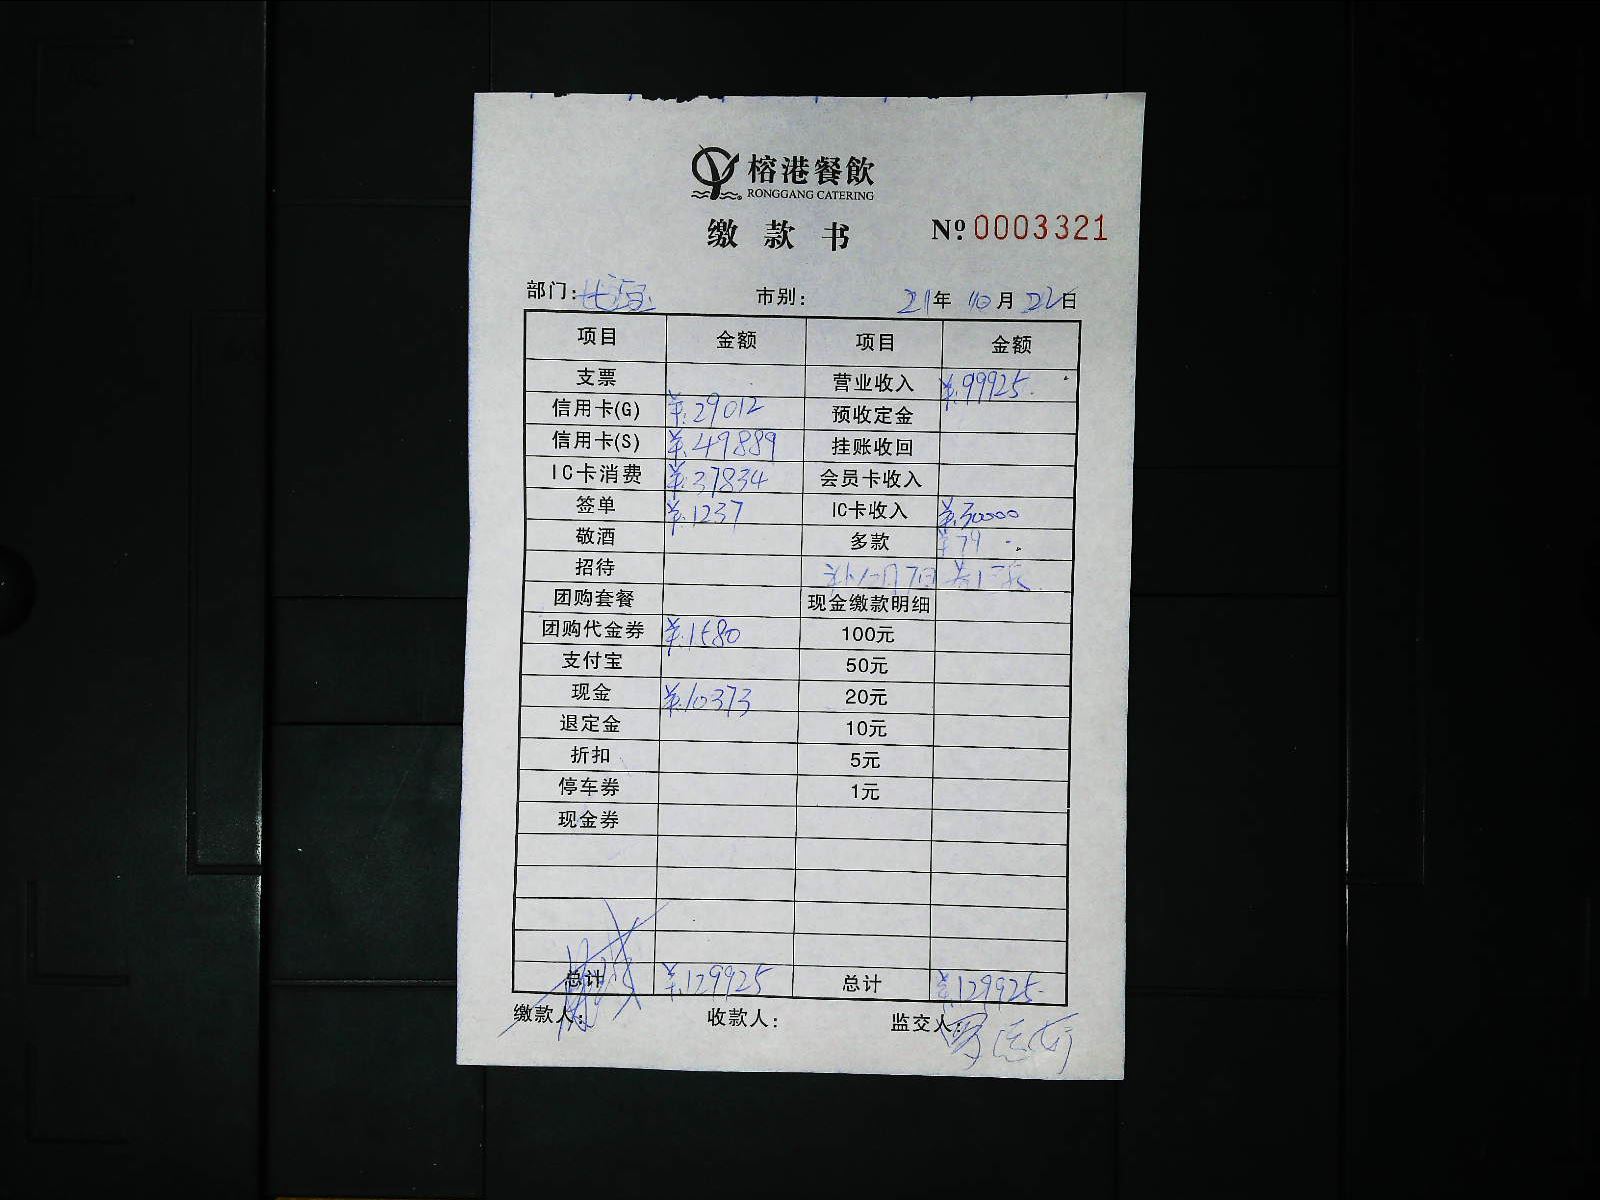 榕港餐飲
RONGGANG CATERING
缴款书 Nº 0003321
部门: 市别: 21年 10月 22日
项目 金额 项目 金额
支票 营业收入 ¥:99925.
信用卡(G) ¥:29012 预收定金
信用卡(S) ¥:49889 挂账收回
IC卡消费 ¥:37834 会员卡收入
签单 ¥:1237 IC卡收入 ¥:30000
敬酒 多款 ¥79
招待
团购套餐 现金缴款明细
团购代金券 ¥:1580 100元
支付宝 50元
现金 ¥:10373 20元
退定金 10元
折扣 5元
停车券 1元
现金券
总计 ¥:129925 总计 ¥:129925.
缴款人: 收款人: 监交人: